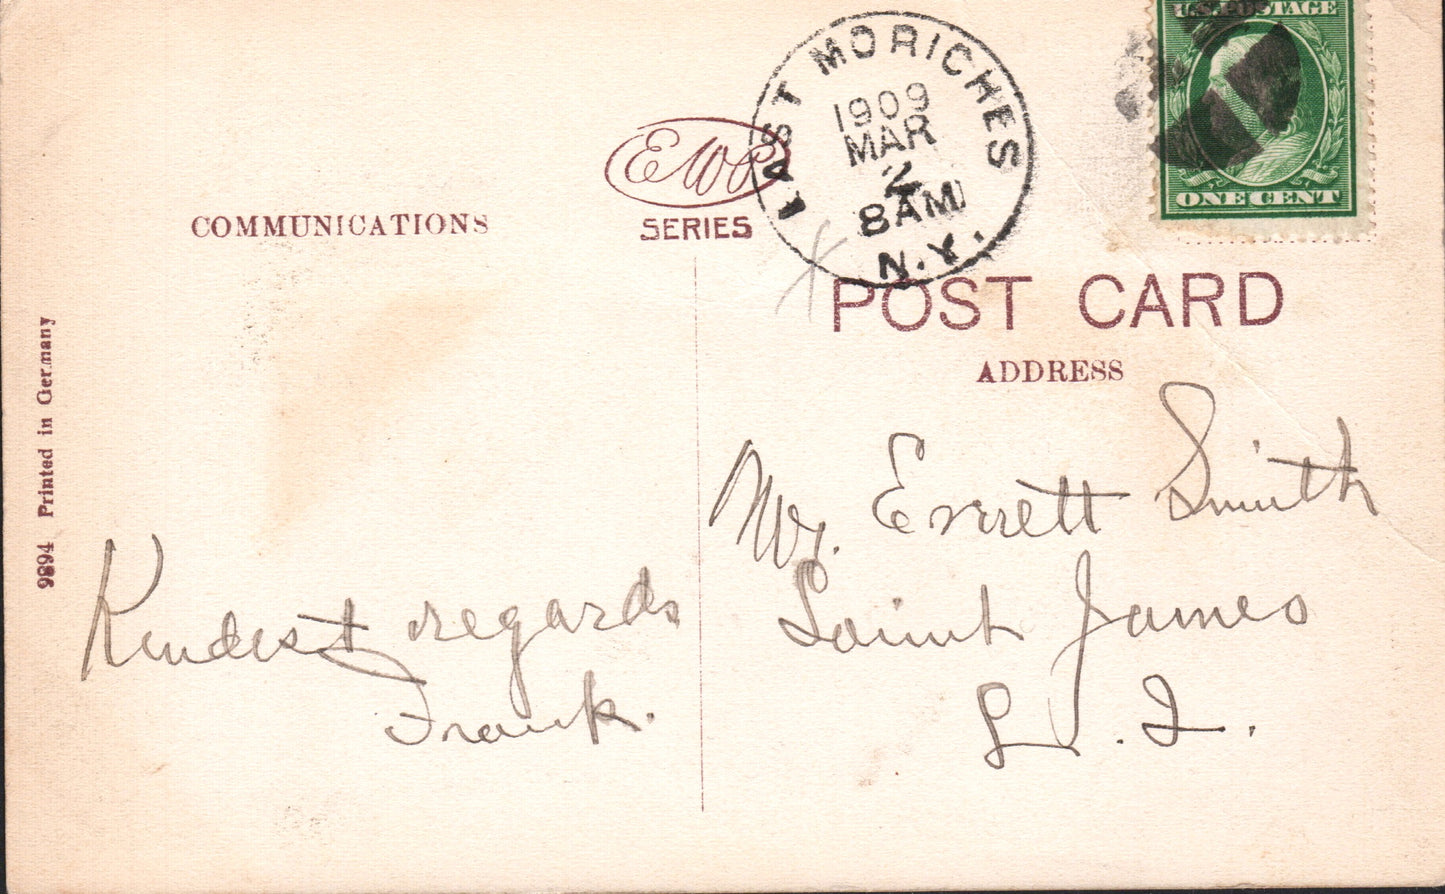 U.S. POSTAGE
ONE CENT
EAST MORICHES
1909
MAR
2
8 AM
N.Y.
EWC
SERIES
COMMUNICATIONS
POST CARD
ADDRESS
9894 Printed in Germany
Mr. Everett Smith
Saint James
L. I.
Kindest regards
Frank.